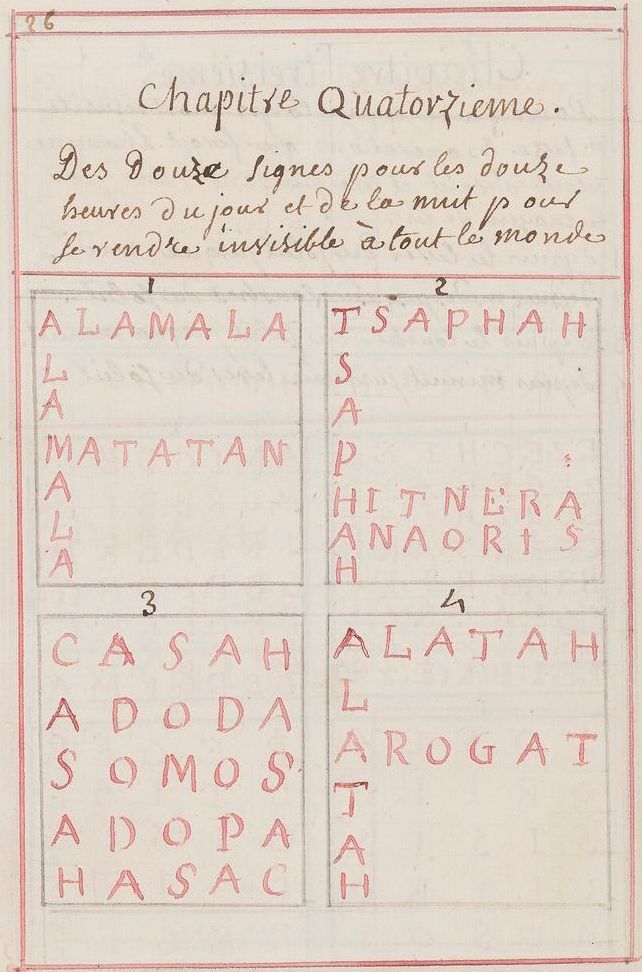 26
Chapitre Quatorzieme.
Des Douze signes pour les douze
heures du jour et de la nuit pour
se rendre invisible à tout le monde
1
ALAMALA
L
A
MATATAN
A
L
A
2
TSAPHAH
S
A
P
HITNERA
ANAORIS
H
3
CASAH
ADODA
SOMOS
ADOPA
HASAC
4
ALATAH
L
AROGAT
T
A
H